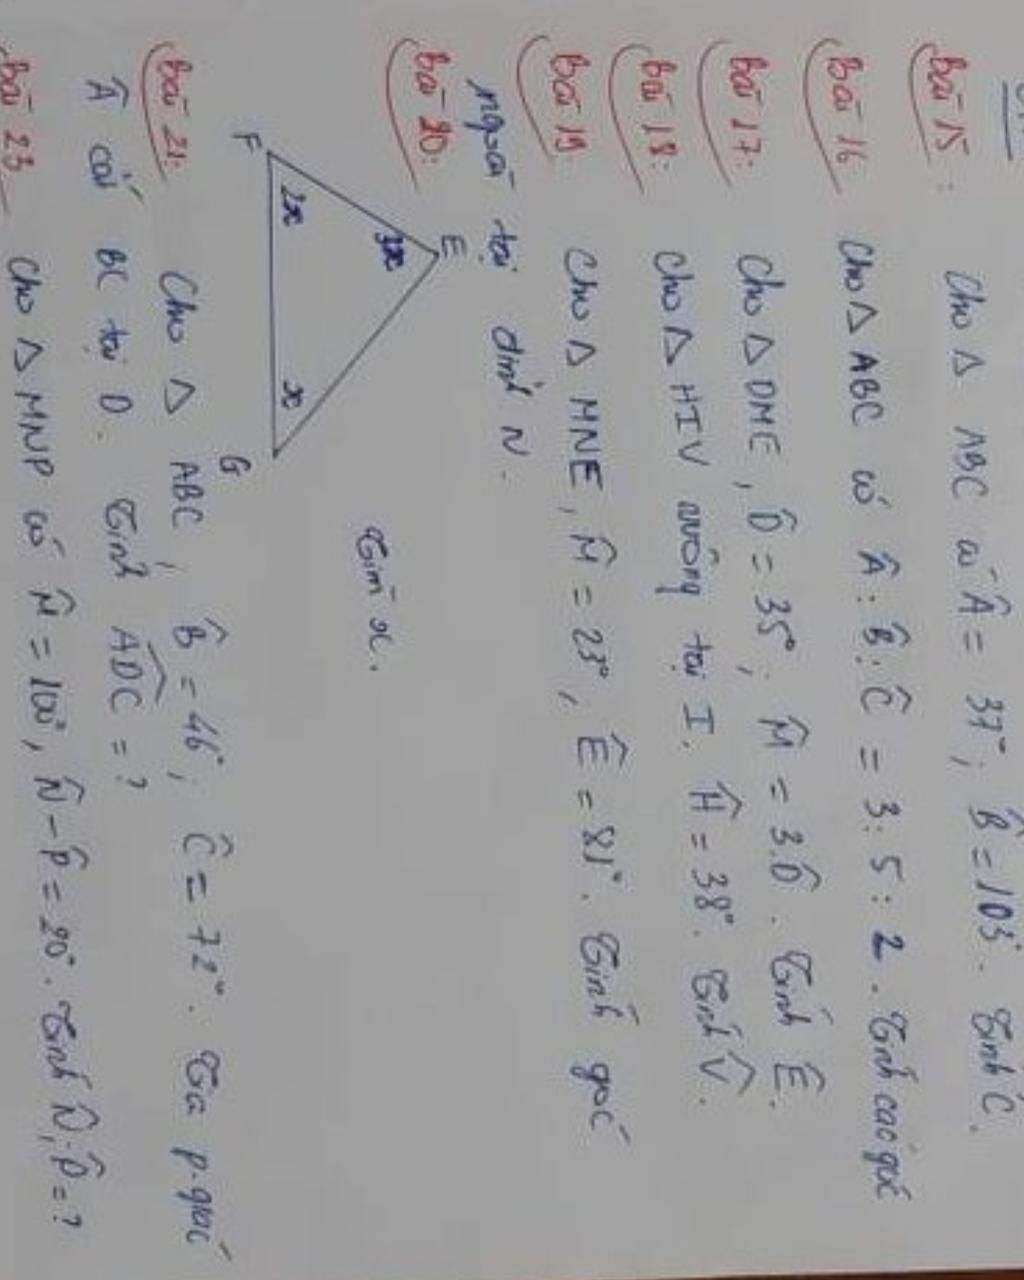 Bài 15: Cho Δ ABC có Â = 37°; B̂ = 103°. Tính Ĉ.
Bài 16 Cho Δ ABC có Â : B̂ : Ĉ = 3 : 5 : 2. Tính các góc
Bài 17: Cho Δ DME, D̂ = 35°; M̂ = 3.D̂. Tính Ê.
Bài 18: Cho Δ HIV vuông tại I. Ĥ = 38°. Tính V̂.
Bài 19. Cho Δ MNE, M̂ = 23°, Ê = 81°. Tính góc
ngoài tại đỉnh N.
Bài 20:
E
3x
Tìm x.
F 2x x G
Bài 21: Cho Δ ABC, B̂ = 46°; Ĉ = 72°. Tia p.giác
Â cắt BC tại D. Tính ADC = ?
Bài 23 Cho Δ MNP có M̂ = 100°, N̂ - P̂ = 20°. Tính N̂; P̂ = ?